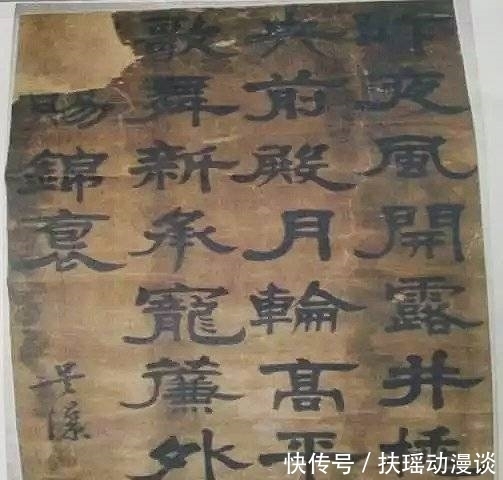 昨夜風開露井桃
央前殿月輪高平
歌舞新承寵薕外
賜錦
快传号/扶瑶动漫谈